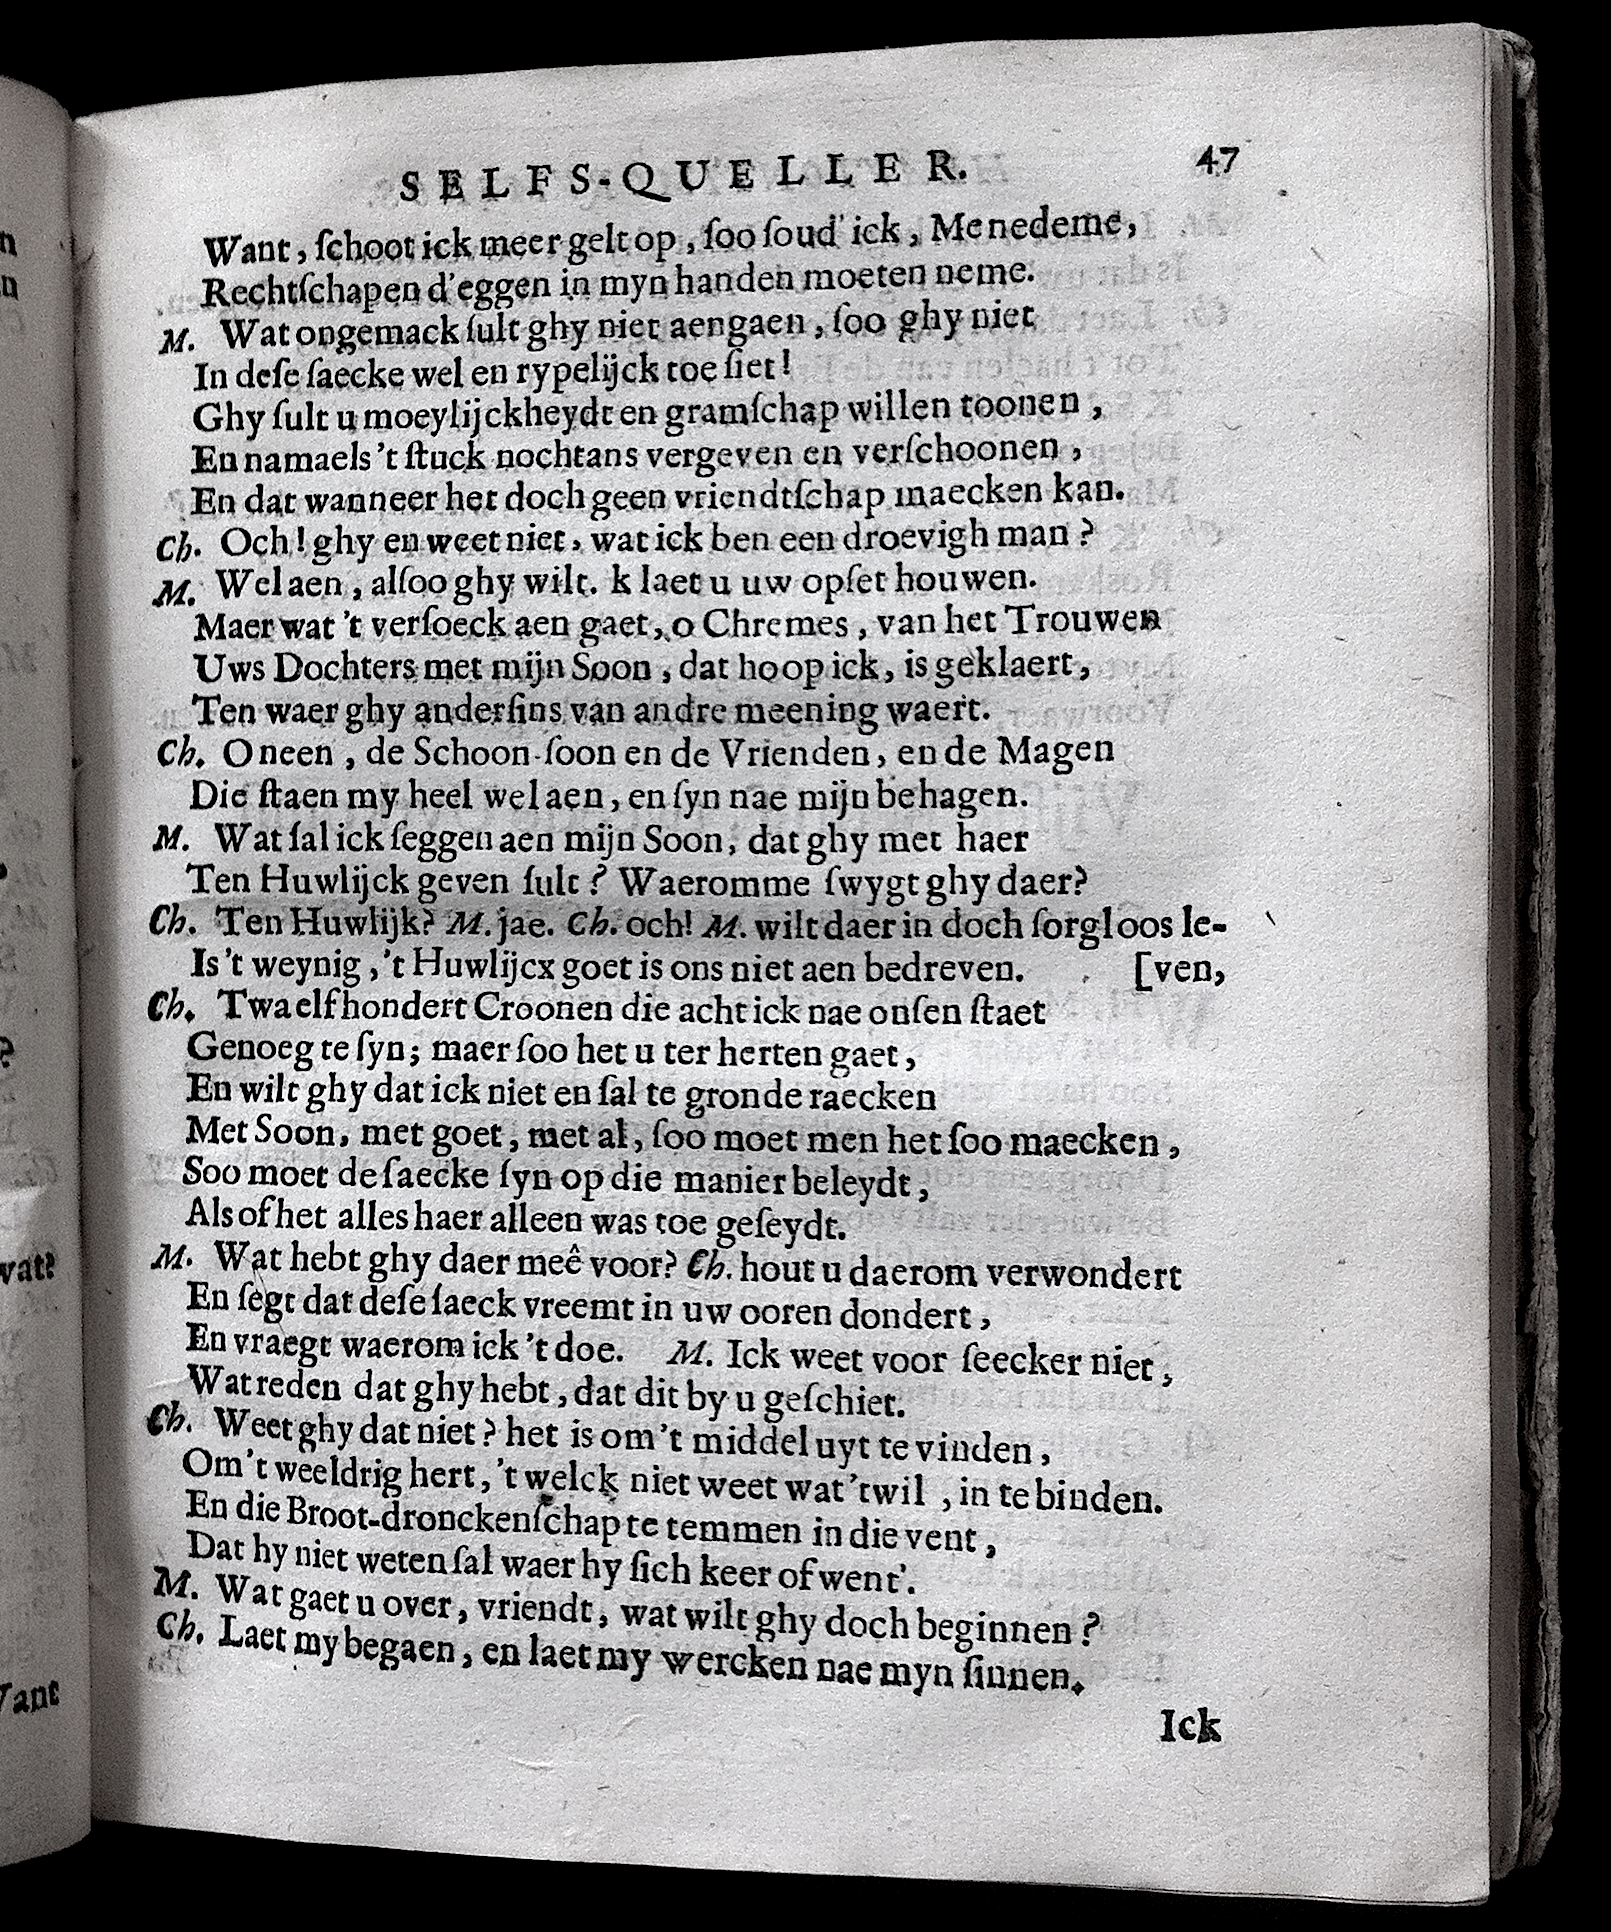 SELFS-QUELLER. 47
Want, ſchoot ick meer gelt op, ſoo ſoud' ick, Menedeme,
Rechtſchapen d'eggen in myn handen moeten neme.
M. Wat ongemack ſult ghy niet aengaen, ſoo ghy niet
In deſe ſaecke wel en rypelijck toe ſiet!
Ghy ſult u moeylijckheydt en gramſchap willen toonen,
En namaels 't ſtuck nochtans vergeven en verſchoonen,
En dat wanneer het doch geen vriendtſchap maecken kan.
Ch. Och! ghy en weet niet, wat ick ben een droevigh man?
M. Wel aen, alſoo ghy wilt. k laet u uw opſet houwen.
Maer wat 't verſoeck aen gaet, o Chremes, van het Trouwen
Uws Dochters met mijn Soon, dat hoop ick, is geklaert,
Ten waer ghy anderſins van andre meening waert.
Ch. O neen, de Schoon-ſoon en de Vrienden, en de Magen
Die ſtaen my heel wel aen, en ſyn nae mijn behagen.
M. Wat ſal ick ſeggen aen mijn Soon, dat ghy met haer
Ten Huwlijck geven ſult? Waeromme ſwygt ghy daer?
Ch. Ten Huwlijk? M. jae. Ch. och! M. wilt daer in doch ſorgloos le-
Is 't weynig, 't Huwlijcx goet is ons niet aen bedreven. [ven,
Ch. Twaelf hondert Croonen die acht ick nae onſen ſtaet
Genoeg te ſyn; maer ſoo het u ter herten gaet,
En wilt ghy dat ick niet en ſal te gronde raecken
Met Soon, met goet, met al, ſoo moet men het ſoo maecken,
Soo moet de ſaecke ſyn op die manier beleydt,
Als of het alles haer alleen was toe geſeydt.
M. Wat hebt ghy daer meê voor? Ch. hout u daerom verwondert
En ſegt dat deſe ſaeck vreemt in uw ooren dondert,
En vraegt waerom ick 't doe. M. Ick weet voor ſeecker niet,
Wat reden dat ghy hebt, dat dit by u geſchiet.
Ch. Weet ghy dat niet? het is om 't middel uyt te vinden,
Om 't weeldrig hert, 't welck niet weet wat 't wil, in te binden.
En die Broot-dronckenſchap te temmen in die vent,
Dat hy niet weten ſal waer hy ſich keer of went'.
M. Wat gaet u over, vriendt, wat wilt ghy doch beginnen?
Ch. Laet my begaen, en laet my wercken nae myn ſinnen.
Ick
n
n
?
wat?
Want